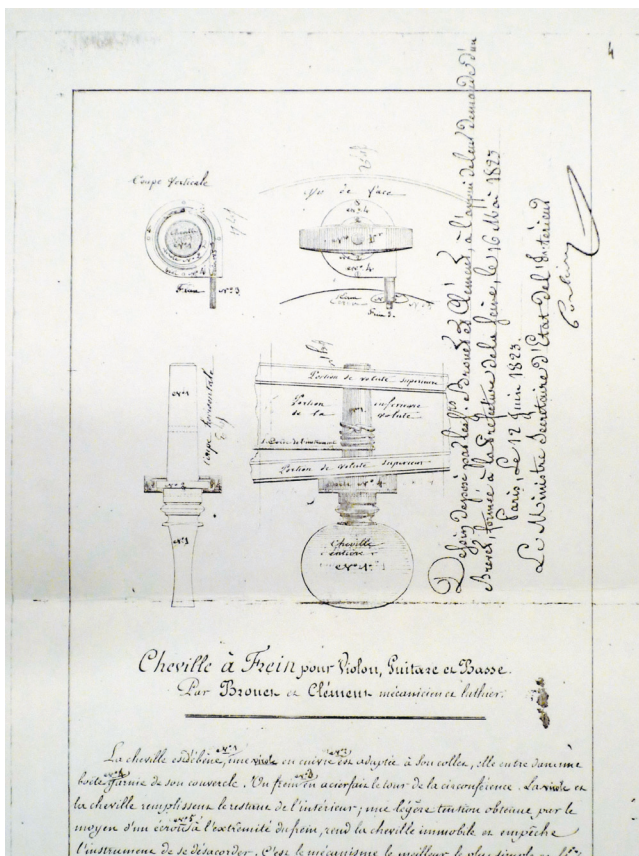 Coupe Verticale
Vue de face
Cheville
N°1
N°4
Frein N°3
Frein
N°1
N°4
Coupe horizontale
N°1
N°2
N°1
Portion de volute supérieure
Portion inférieure
de la volute
Corde de l'instrument
Portion de volute supérieure
N°4
Cheville
entière
N°1
Dessin déposé par les Srs Brouet et Clément, à l'appui de leur demande d'un
Brevet, formée à la Préfecture de la Seine, le 16 Mai 1823
Paris, Le 12 Juin 1823.
Le Ministre Secrétaire d'Etat de l'Intérieur
Cheville à Frein pour Violon, Guitare et Basse.
Par Brouet et Clément mécanicien et luthier.
La cheville est d'ébène, N°1 une virole en cuivre N°2 est adaptée à son collet, elle entre dans une
boete N°4 garnie de son couvercle. Un frein N°3 en acier fait le tour de la circonférence. La virole et
la cheville remplissent le restant de l'intérieur; une légère tention obtenue par le
moyen d'un écrou N°5 à l'extrémité du frein, rend la cheville immobile et empêche
l'instrument de se désacorder. C'est le mécanisme le meilleur le plus simple